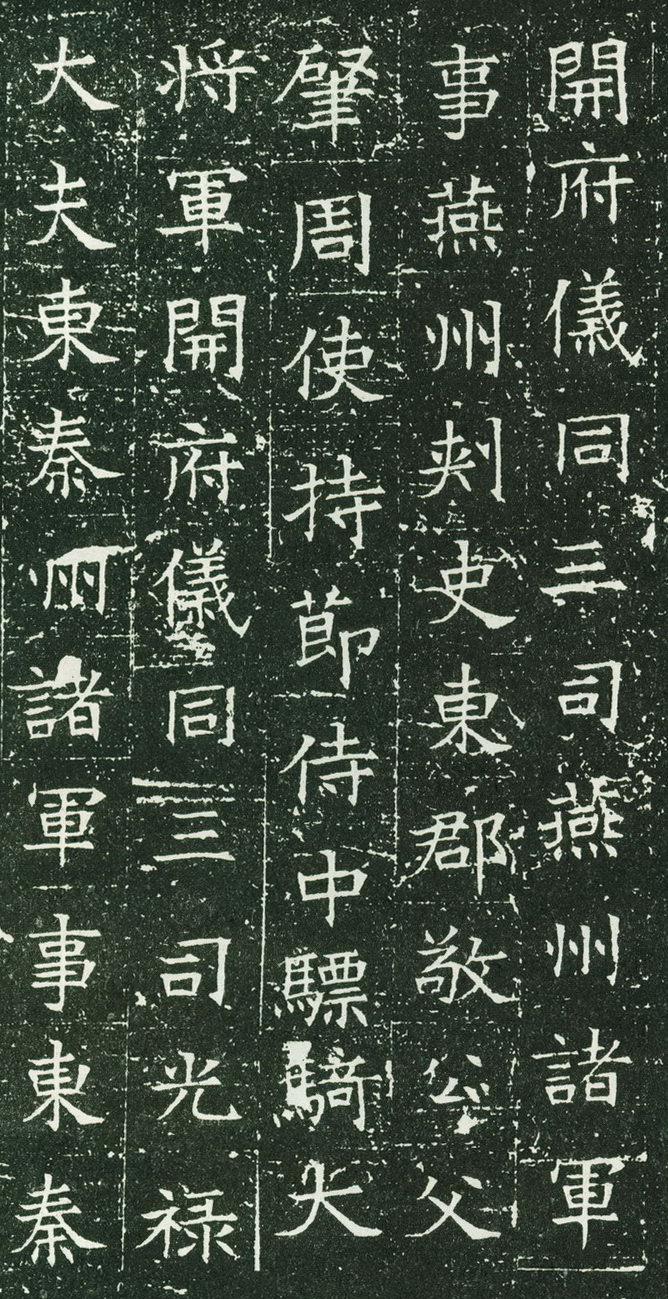 開府儀同三司燕州諸軍
事燕州刾史東郡敬公父
肇周使持節侍中驃騎大
将軍開府儀同三司光禄
大夫東秦州諸軍事東秦